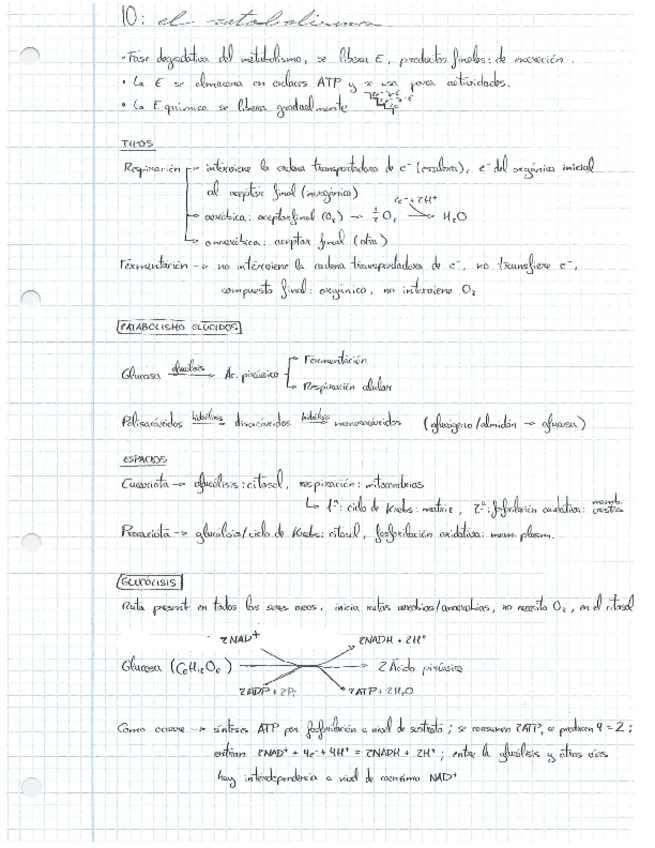 10: el catabolismo
· Fase degradativa del metabolismo, se libera E, productos finales: de excreción.
· La E se almacena en enlaces ATP y se usa para actividades.
· La E química se libera gradualmente
TIPOS
Respiración → interviene la cadena transportadora de e⁻ (escalera), e⁻ del orgánico inicial
al aceptor final (inorgánico)
2e⁻ + 2H⁺
→ aeróbica: aceptor final (O₂) → ½ O₂ → H₂O
→ anaeróbica: aceptor final (otra)
Fermentación → no interviene la cadena transportadora de e⁻, no transfiere e⁻,
compuesto final: orgánico, no interviene O₂
CATABOLISMO GLÚCIDOS
Glucosa glucólisis → Ac. pirúvico → Fermentación
→ Respiración celular
Polisacáridos hidrólisis → disacáridos hidrólisis → monosacáridos (glucógeno/almidón → glucosa)
ESPACIOS
Eucariota → glucólisis: citosol, respiración: mitocondrias
↳ 1ª: ciclo de Krebs: matriz, 2ª: fosforilación oxidativa: memb. crestas
Procariota → glucólisis/ciclo de Krebs: citosol, fosforilación oxidativa: mem. plasm.
GLUCÓLISIS
Ruta present en todos los seres vivos, inicia rutas aerobias/anaerobias, no necesita O₂, en el citosol
2NAD⁺ 2NADH + 2H⁺
Glucosa (C₆H₁₂O₆) → 2 Ácido pirúvico
2ADP + 2Pᵢ 2ATP + 2H₂O
Como ocurre → síntesis ATP por fosforilación a nivel de sustrato; se consumen 2ATP, se producen 4 = 2;
entran 2NAD⁺ + 4e⁻ + 4H⁺ = 2NADH + 2H⁺; entre la glucólisis y otras vías
hay interdependencia a nivel de coenzima NAD⁺